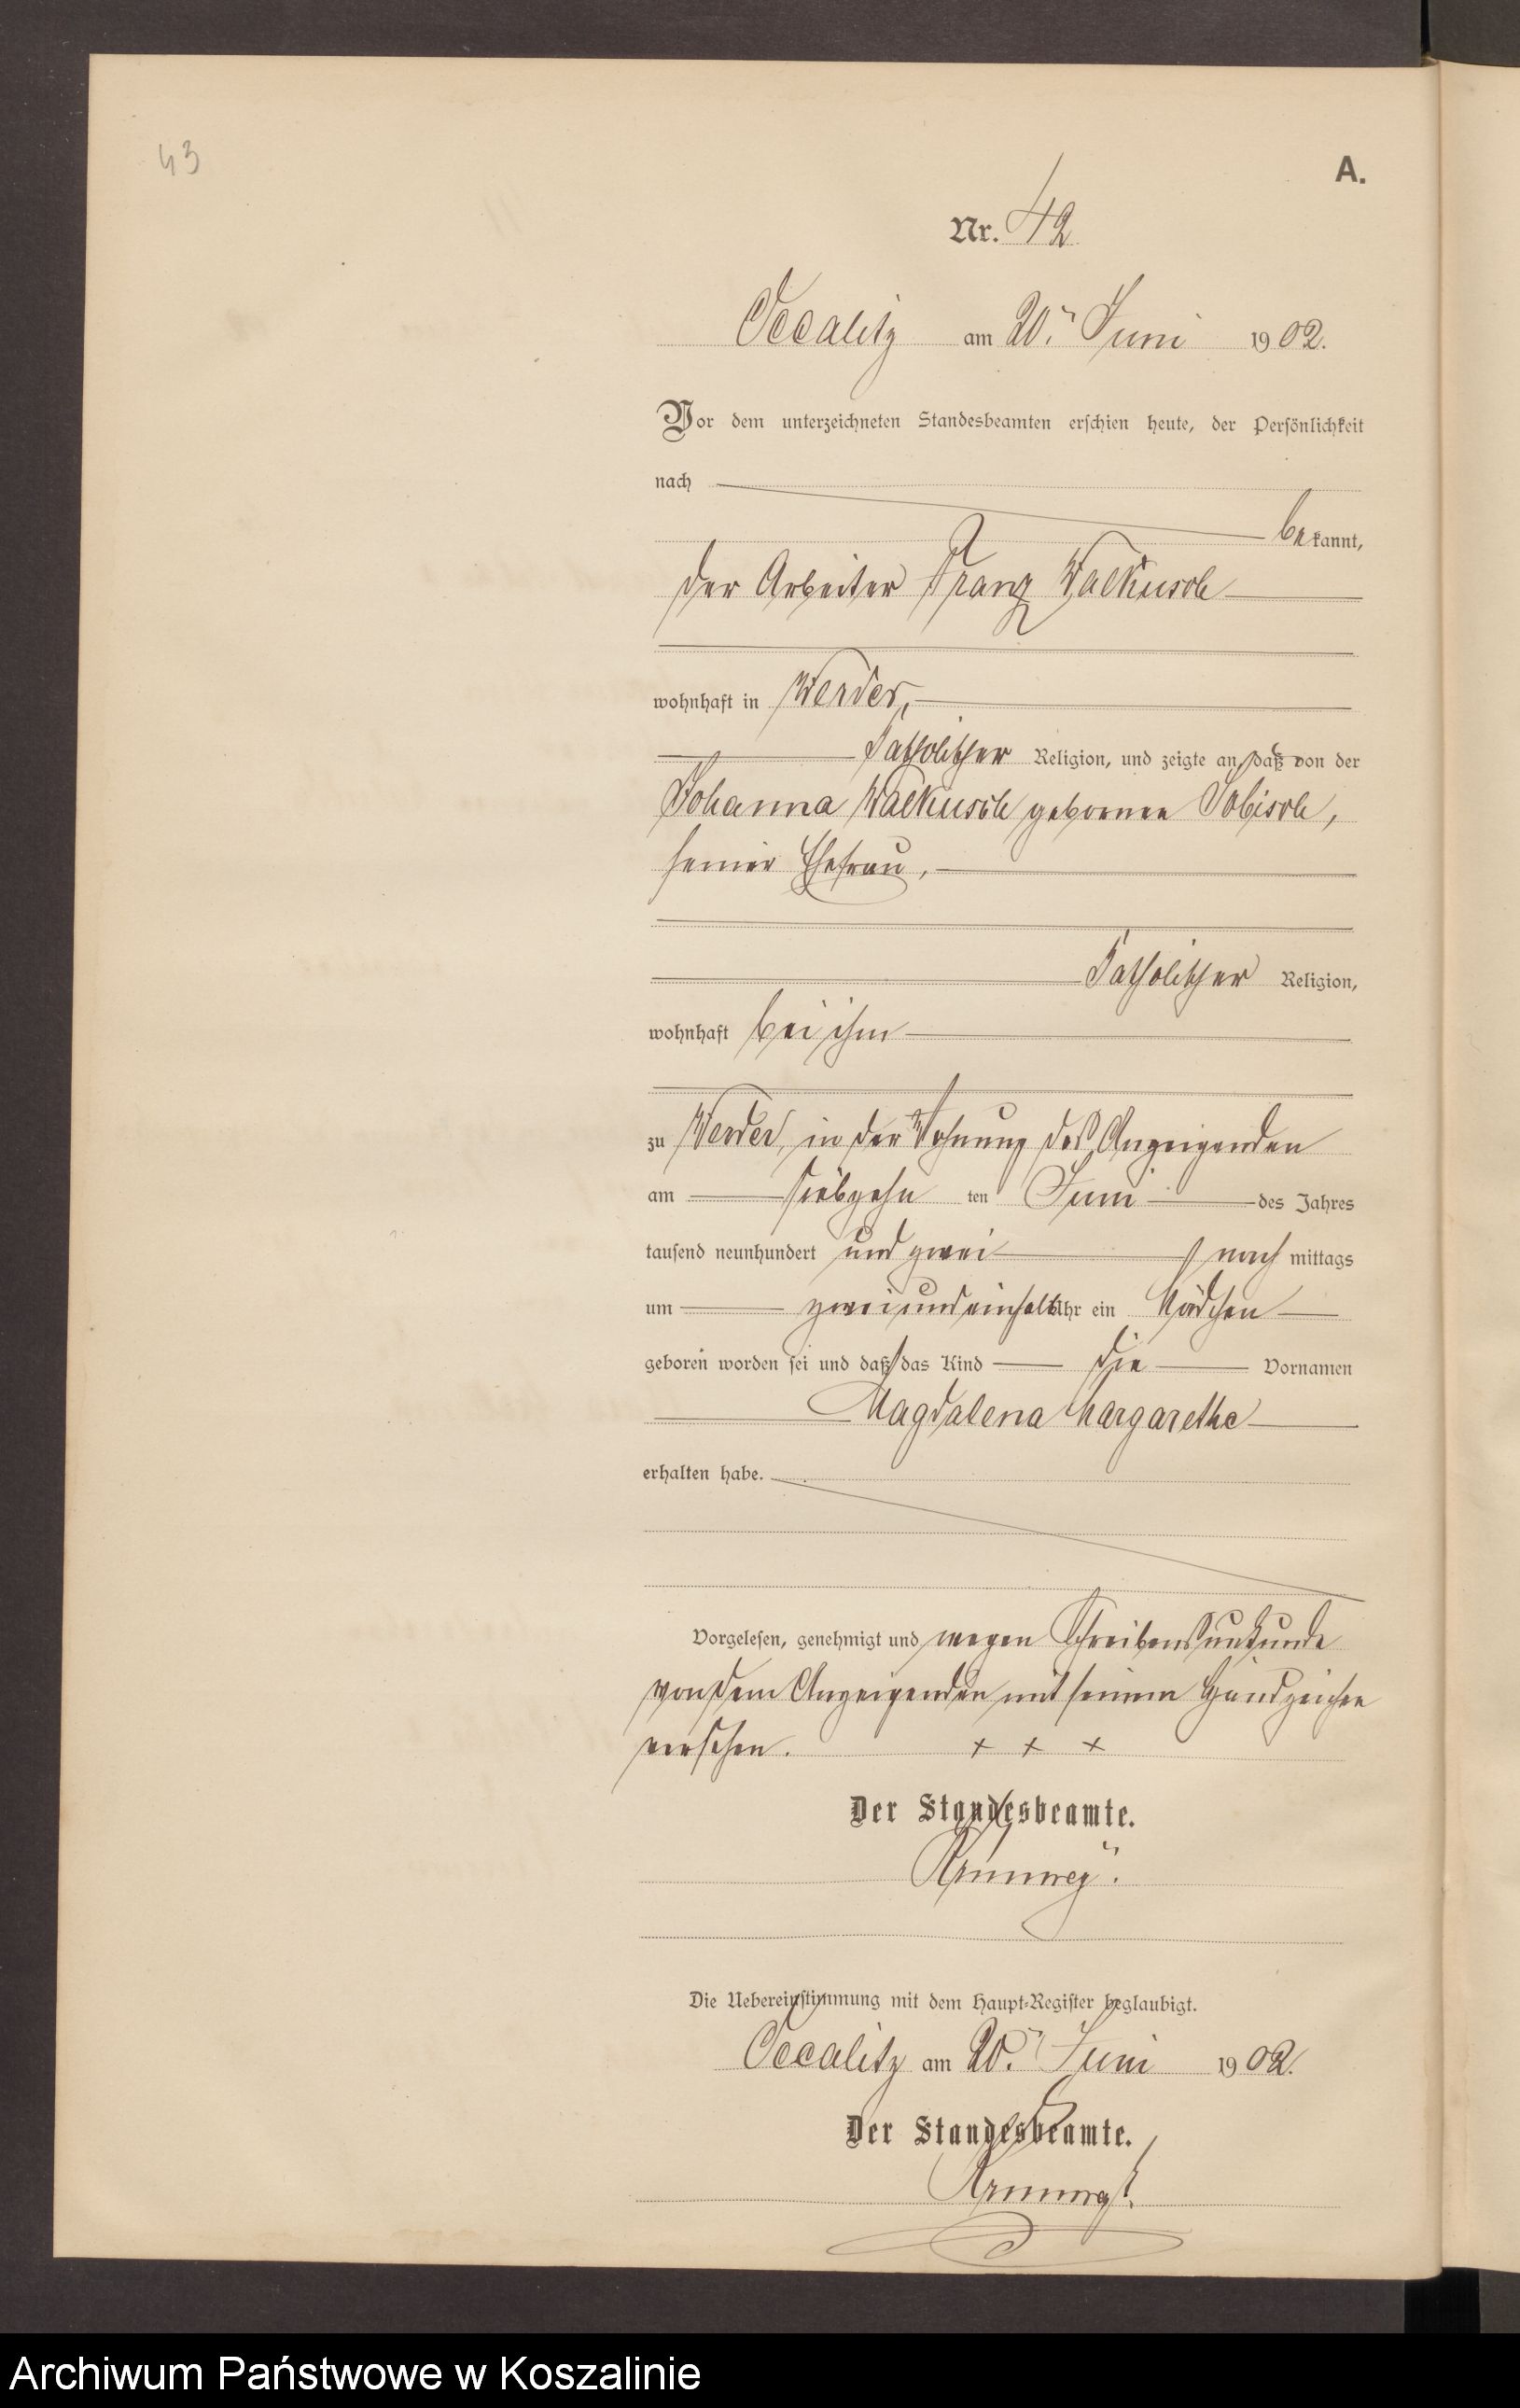 43
A.
Nr. 42
Occalitz am 20ⁿ Juni 1902.
Vor dem unterzeichneten Standesbeamten erschien heute, der Persönlichkeit
nach
bekannt,
der Arbeiter Franz Walkusch
wohnhaft in Werder,
katholischer Religion, und zeigte an, daß von der
Johanna Walkusch geborenen Sobisch,
seiner Ehefrau,
katholischer Religion,
wohnhaft bei ihm
zu Werder, in der Wohnung des Anzeigenden
am siebzehn ten Juni des Jahres
tausend neunhundert und zwei nach mittags
um zwei und einhalb Uhr ein Mädchen
geboren worden sei und daß das Kind die Vornamen
Magdalena Margarethe
erhalten habe.
Vorgelesen, genehmigt und wegen Schreibensunkunde
von dem Anzeigenden mit seinem Handzeichen
versehen. + + +
Der Standesbeamte.
Die Uebereinstimmung mit dem Haupt-Register beglaubigt.
Occalitz am 20ⁿ Juni 1902.
Der Standesbeamte.
Archiwum Państwowe w Koszalinie